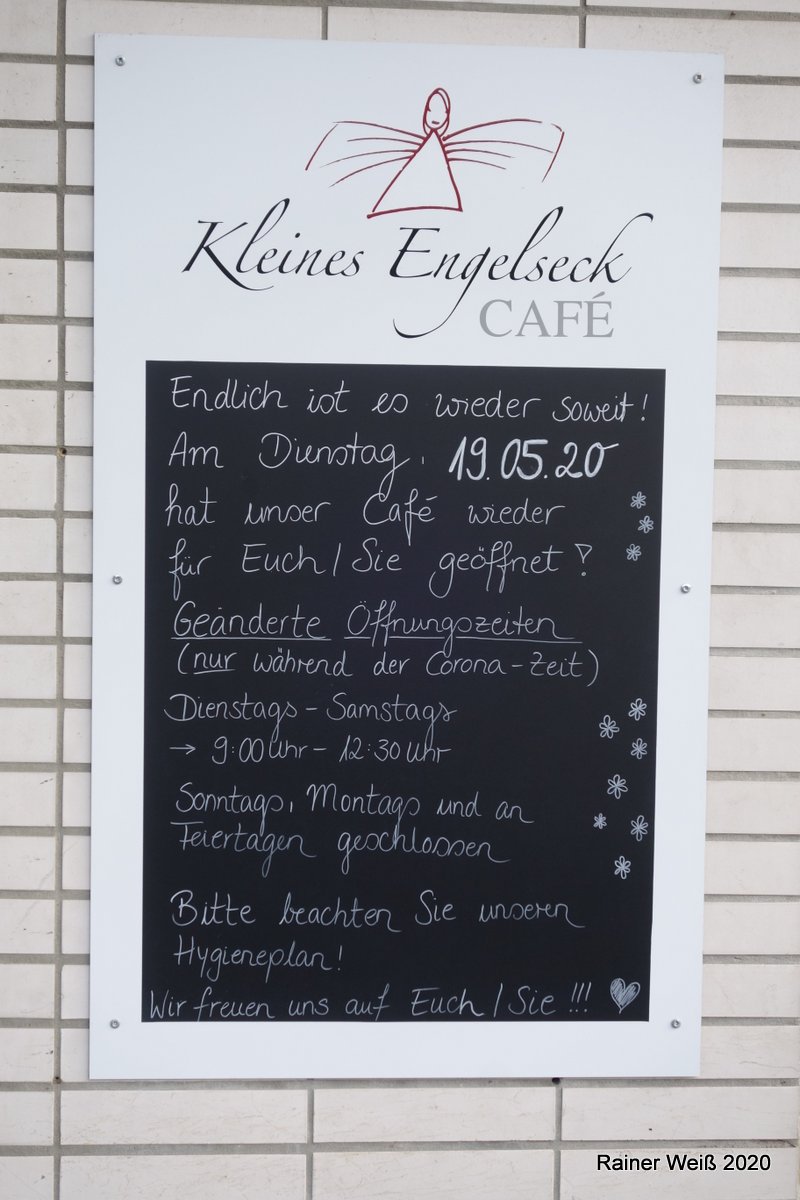 Kleines Engelseck
CAFÉ
Endlich ist es wieder soweit!
Am Dienstag, 19.05.20
hat unser Café wieder
für Euch / Sie geöffnet!
Geänderte Öffnungszeiten
(nur während der Corona-Zeit)
Dienstags - Samstags
→ 9:00 Uhr - 12:30 Uhr
Sonntags, Montags und an
Feiertagen geschlossen
Bitte beachten Sie unseren
Hygieneplan!
Wir freuen uns auf Euch / Sie !!!
Rainer Weiß 2020